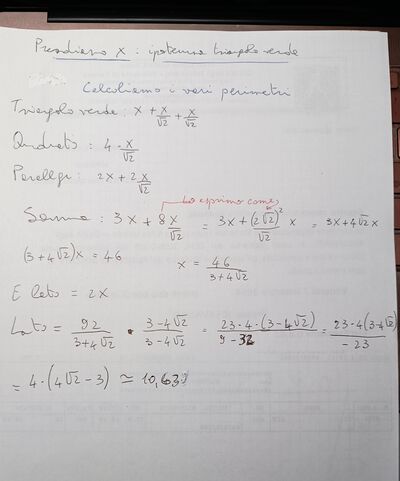 Prendiamo x : ipotenusa triangolo verde
Calcoliamo i vari perimetri
Triangolo verde : x + x/√2 + x/√2
Quadrato : 4 · x/√2
Parallegr : 2x + 2 x/√2
Lo esprimo come
Somma : 3x + 8 x/√2 = 3x + (2√2)²/√2 x = 3x + 4√2 x
(3 + 4√2) x = 46    x = 46/(3 + 4√2)
E lato = 2x
Lato = 92/(3 + 4√2) · (3 - 4√2)/(3 - 4√2) = 23 · 4 · (3 - 4√2)/(9 - 32) = 23 · 4 (3 - 4√2)/(-23)
= 4 · (4√2 - 3) ≃ 10,63